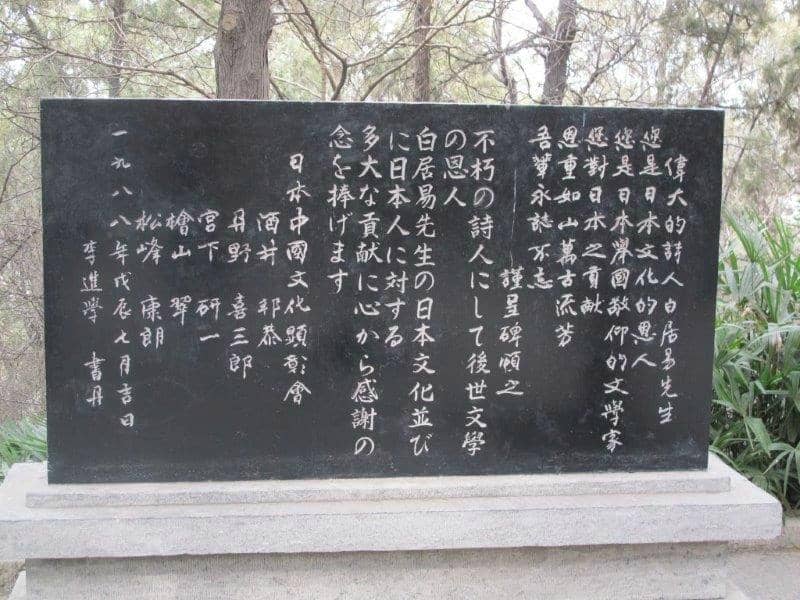 偉大的詩人白居易先生
您是日本文化的恩人
您是日本舉國敬仰的文学家
您對日本之貢献
恩重如山萬古流芳
吾輩永誌不忘
謹呈碑頌之
不朽の詩人にして後世文學
の恩人
白居易先生の日本文化並び
に日本人に対する
多大な貢献に心から感謝の
念を捧げます
日本中國文化顕彰會
酒井 邦恭
丹野 喜三郎
宮下 研一
檜山 翠
松峰 康朗
一九八八年戊辰七月吉日
李進學 書丹